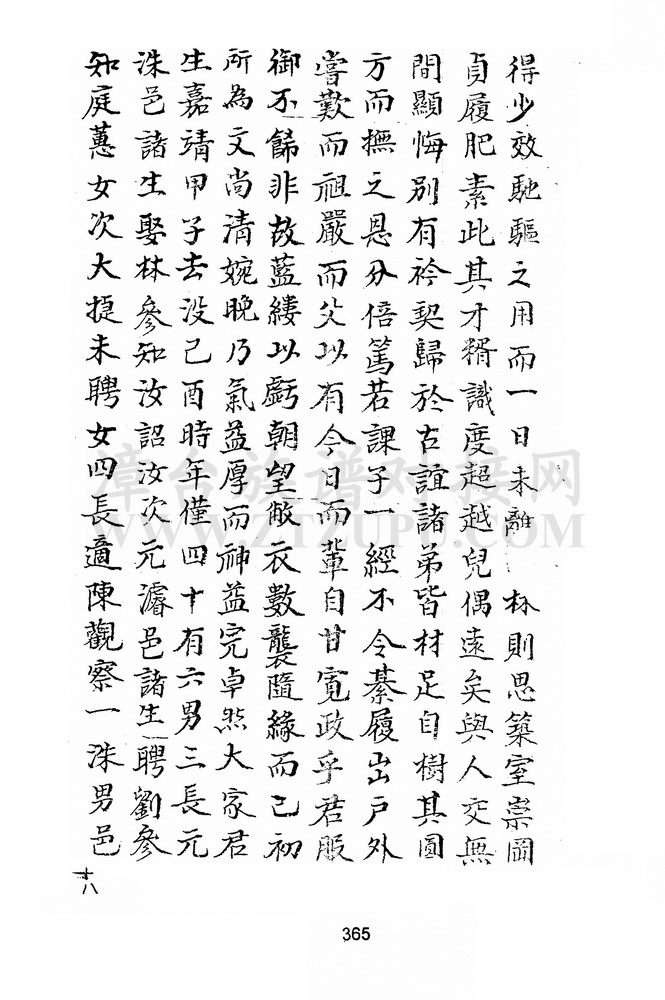 得少效馳驅之用而一日未離 林則思築室崇岡
貞履肥素此其才猾識度超越兒偶遠矣與人交無
間顯悔別有衿契歸於古誼諸弟皆材足自樹其圓
方而撫之恩分倍篤若課子一經不令綦履出戶外
嘗歎而祖嚴而父以有今日而輩自甘寬政乎君服
御不飾非故藍縷以虧朝望敝衣數襲隨緣而已初
所為文尚清婉晚乃氣益厚而神益完卓然大家君
生嘉靖甲子去没己酉時年僅四十有六男三長元
洙邑諸生娶林參知汝詔汝次元濬邑諸生聘劉參
知庭蕙女次大㨗未聘女四長適陳觀察一洙男邑
十八
365
漳台族谱对接网
WWW.ZTZUPU.COM